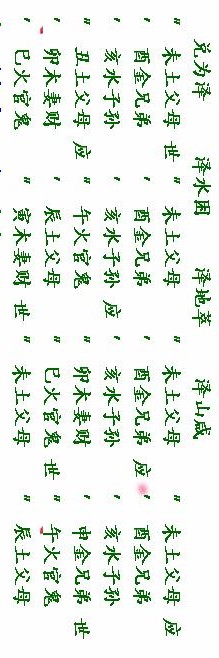 兑为泽 泽水困 泽地萃 泽山咸
〃 未土父母 世 〃 未土父母 〃 未土父母 〃 未土父母 应
′ 酉金兄弟 ′ 酉金兄弟 ′ 酉金兄弟 应 ′ 酉金兄弟
′ 亥水子孙 ′ 亥水子孙 应 ′ 亥水子孙 ′ 亥水子孙
〃 丑土父母 应 〃 午火官鬼 〃 卯木妻财 ′ 申金兄弟 世
′ 卯木妻财 ′ 辰土父母 〃 巳火官鬼 世 〃 午火官鬼
′ 巳火官鬼 〃 寅木妻财 世 〃 未土父母 〃 辰土父母